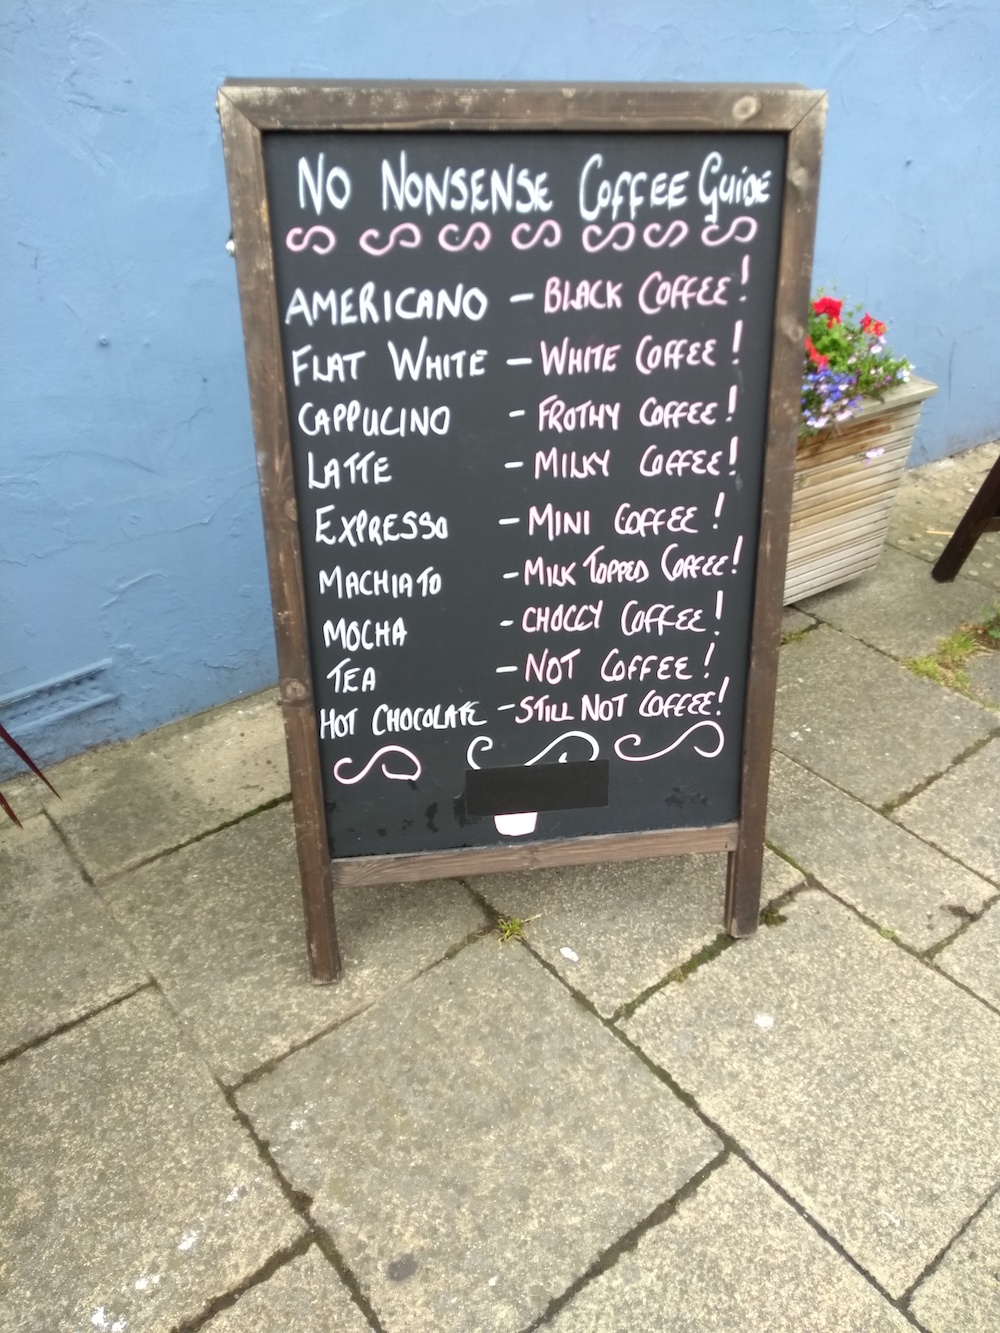 NO NONSENSE COFFEE GUIDE
AMERICANO - BLACK COFFEE!
FLAT WHITE - WHITE COFFEE!
CAPPUCINO - FROTHY COFFEE!
LATTE - MILKY COFFEE!
EXPRESSO - MINI COFFEE!
MACHIATO - MILK TOPPED COFFEE!
MOCHA - CHOCCY COFFEE!
TEA - NOT COFFEE!
HOT CHOCOLATE - STILL NOT COFFEE!